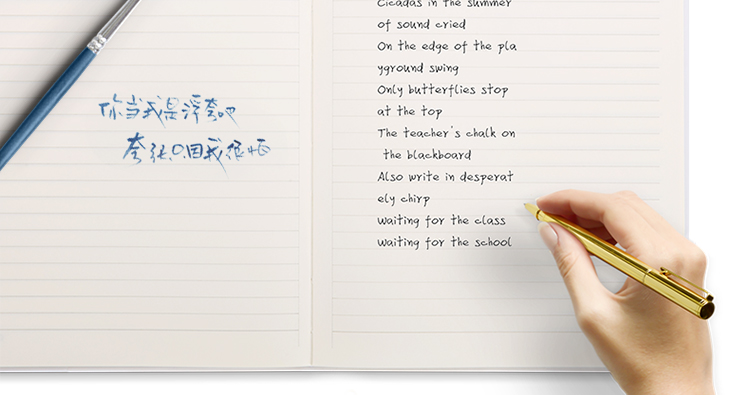 你当我是浮夸吧
夸张只因我很怕
Cicadas in the summer
of sound cried
On the edge of the pla
yground swing
Only butterflies stop
at the top
The teacher's chalk on
the blackboard
Also write in desperat
ely chirp
Waiting for the class
Waiting for the school